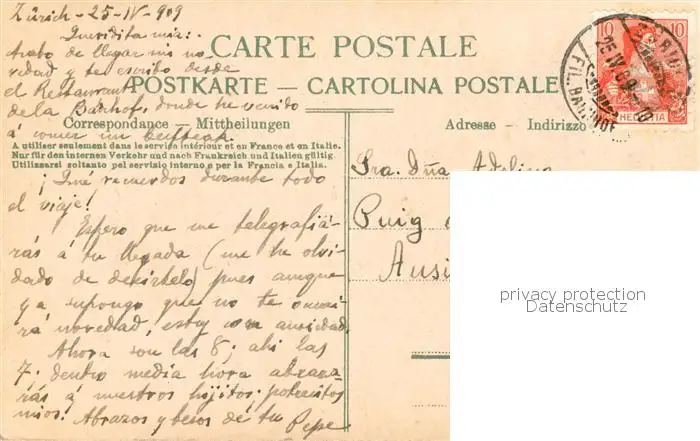 Zürich - 25-IV-909
Queridita mía:
Acabo de llegar sin no-
vedad y te escribo desde
el Restaurant
de la Bahnhof, donde he venido
á comer un beifteak
CARTE POSTALE
POSTKARTE - CARTOLINA POSTALE
Correspondance - Mittheilungen
Adresse - Indirizzo
A utiliser seulement dans le service intérieur et en France et en Italie.
Nur für den internen Verkehr und nach Frankreich und Italien gültig.
Utilizzarsi soltanto pel servizio interno e per la Francia e Italia.
¡Qué recuerdos durante todo
el viaje!
Espero que me telegrafia-
rás á tu llegada (me he olvi-
dado de decírtelo) pues aunque
ya supongo que no te ocurri-
rá novedad, estoy con ansiedad.
Ahora són las 8; ahi las
7. dentro media hora abraza-
rás á nuestros hijitos; pobrecitos
mios. Abrazos y besos de tu
Pepe
Sra. Dña Adelina
Puig
Ausi
10 10
HELVETIA
25 IV 09
privacy protection
Datenschutz